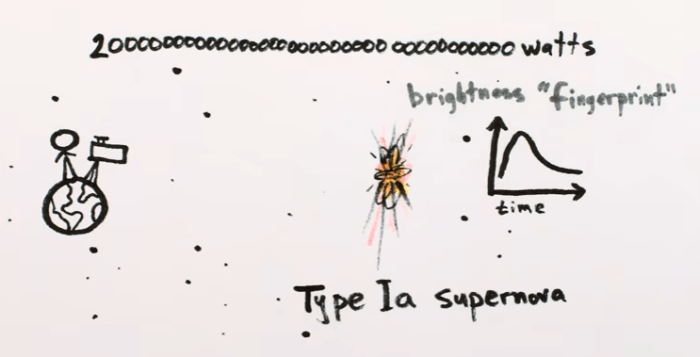 watts
brightness "fingerprint"
time
Type Ia supernova